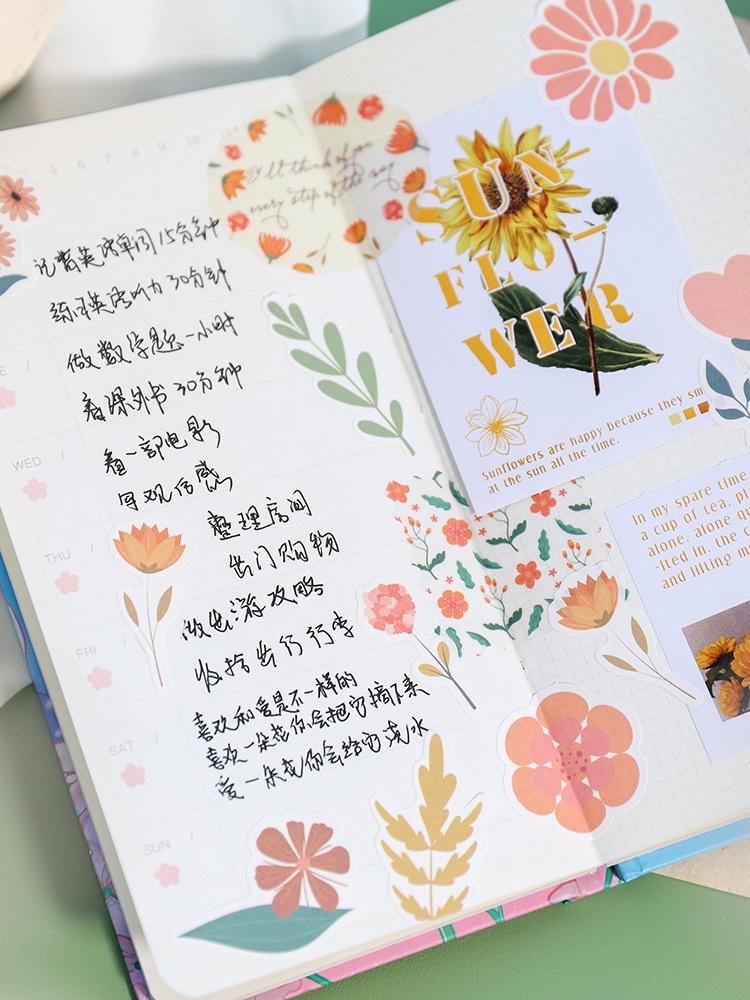 5 6 7 8 9 10 11
I'll think of you
every step of the way
记背英语单词15分钟
练习英语听力30分钟
做数学题一小时
看课外书30分钟
看一部电影
写观后感
整理房间
出门购物
做出游攻略
收拾出行行李
喜欢和爱是不一样的
喜欢一朵花你会把它摘下来
爱一朵花你会给它浇水
WED /
THU /
FRI /
SAT /
SUN /
SUN-
FLO-
WER
Sunflowers are happy because they sm
at the sun all the time.
In my spare time
a cup of tea, p
alone, alone qu
-lted in, the c
and lilting m